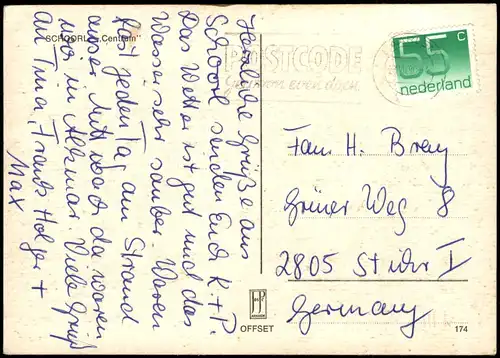 SCHOORL „Centrum"
Herzliche Grüße aus
Schoorl senden Euch K + P.
Das Wetter ist gut und das
Wasser sehr sauber. Waren
fast jeden Tag am Strand
außer Mittwoch da waren
wir in Alkmar. Viele Grüße
an Tina, Frank, Holger +
Max
POSTCODE
55 c
nederland
Fam. H. Brey
Grüner Weg 8
2805 Stuhr I
Germany
OFFSET
174